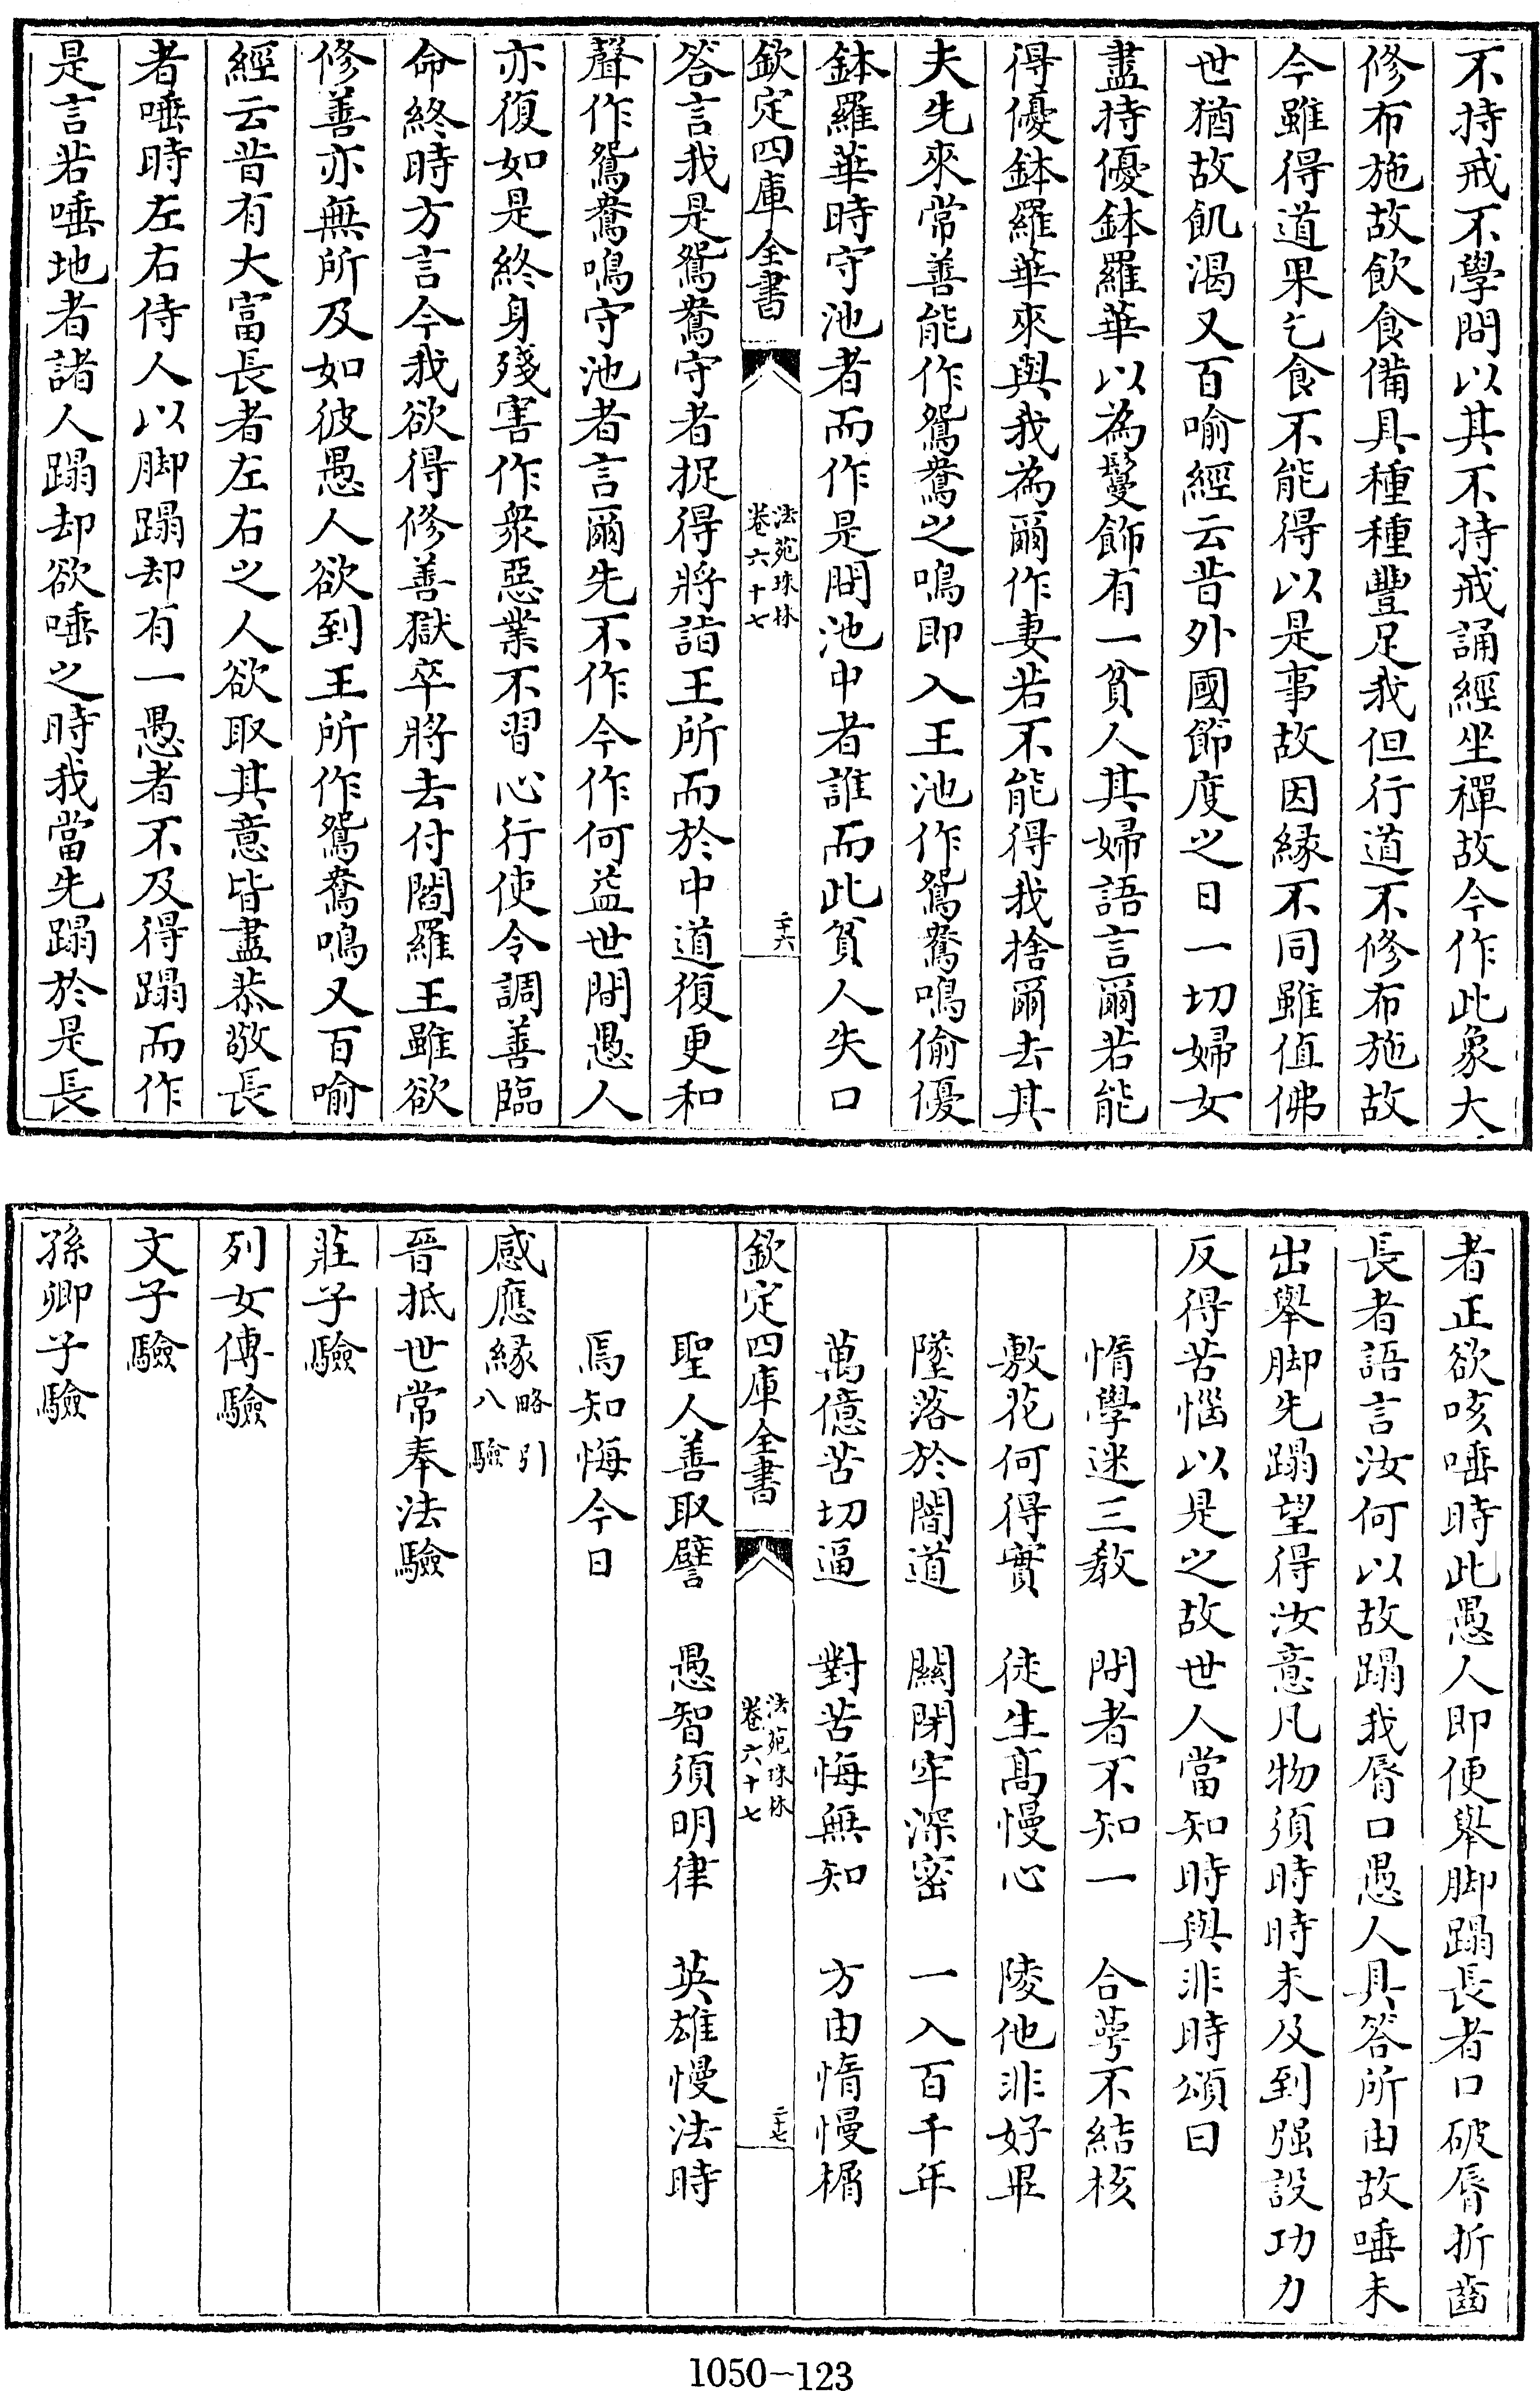 不持戒不學問以其不持戒誦經坐禪故今作此象大
修布施故飲食備具種種豐足我但行道不修布施故
今雖得道果乞食不能得以是事故因縁不同雖值佛
世猶故飢渴又百喻經云昔外國節度之日一切婦女
盡持優鉢羅華以為鬘飾有一貧人其婦語言爾若能
得優鉢羅華來與我為爾作妻若不能得我捨爾去其
夫先來常善能作鴛鴦之鳴即入王池作鴛鴦鳴偷優
鉢羅華時守池者而作是問池中者誰而此貧人失口
欽定四庫全書
法苑珠林
卷六十七
二十六
答言我是鴛鴦守者捉得將詣王所而於中道復更和
聲作鴛鴦鳴守池者言爾先不作今作何益世間愚人
亦復如是終身殘害作衆惡業不習心行使令調善臨
命終時方言今我欲得修善獄卒將去付閻羅王雖欲
修善亦無所及如彼愚人欲到王所作鴛鴦鳴又百喻
經云昔有大富長者左右之人欲取其意皆盡恭敬長
者唾時左右侍人以脚蹋却有一愚者不及得蹋而作
是言若唾地者諸人蹋却欲唾之時我當先蹋於是長
者正欲咳唾時此愚人即便舉脚蹋長者口破脣折齒
長者語言汝何以故蹋我脣口愚人具答所由故唾未
出舉脚先蹋望得汝意凡物須時時未及到强設功力
反得苦惱以是之故世人當知時與非時頌曰
惰學迷三教　問者不知一　合蕚不結核
敷花何得實　徒生髙慢心　陵他非好畢
墜落於闇道　關閉牢深密　一入百千年
萬億苦切逼　對苦悔無知　方由惰慢楣
欽定四庫全書
法苑珠林
卷六十七
二十七
聖人善取譬　愚智須明律　英雄慢法時
焉知悔今日
感應縁略引八驗
晉抵世常奉法驗
莊子驗
列女傳驗
文子驗
孫卿子驗
1050-123